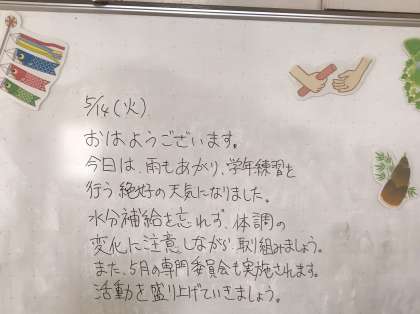 5/14(火)
おはようございます。
今日は、雨もあがり、学年練習を
行う絶好の天気になりました。
水分補給を忘れず、体調の
変化に注意しながら取り組みましょう。
また、5月の専門委員会も実施されます。
活動を盛り上げていきましょう。